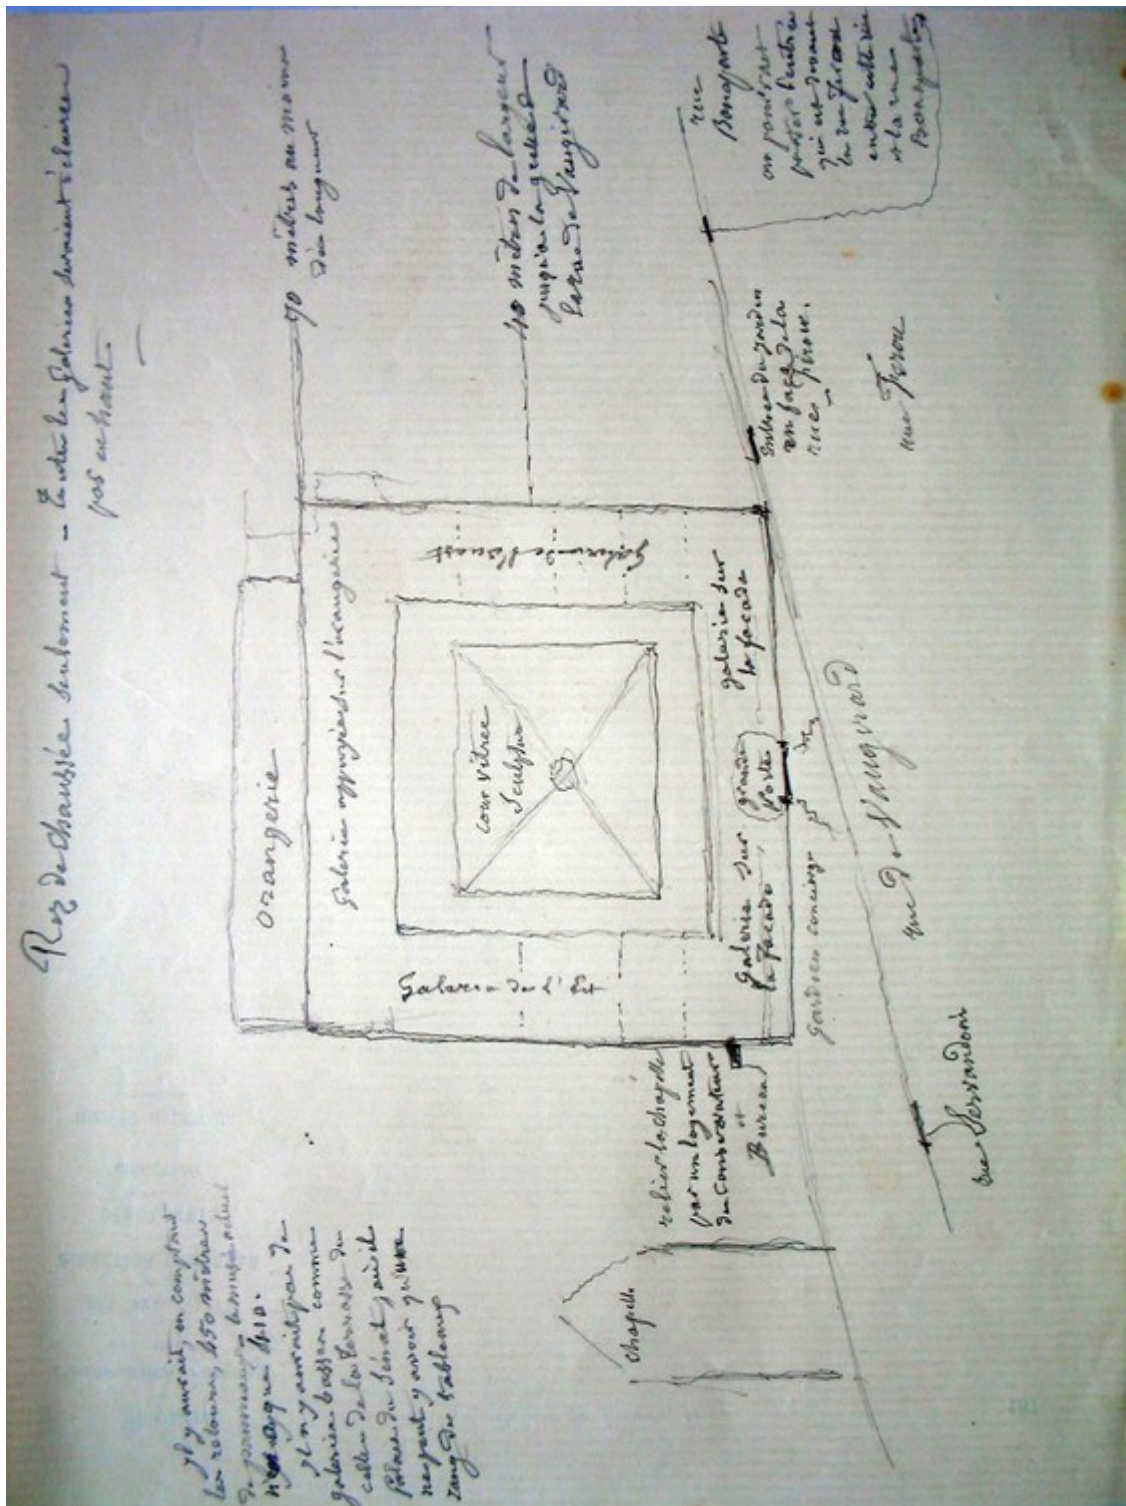 Rez de chaussée seulement - toutes les galeries seraient éclairées
par en haut.
70 mètres au moins
de longueur
40 mètres de largeur
jusqu'à la grille de
la rue de Vaugirard
rue
Bonaparte
on pourrait
porter l'entrée
qui est devant
la rue Férou
entre cette rue
et la rue
Bonaparte
orangerie
Galerie appuyée sur l'orangerie
Galerie de l'ouest
cour vitrée
Sculpture
Galerie de l'Est
galerie sur
la façade
grande
Porte
Galerie sur
la façade
Gardien concierge
Entrée du jardin
en face de la
rue Férou.
rue Férou
rue de Vaugirard
rue Servandoni
relier la chapelle
par un logement
du Conservateur
et
Bureau
chapelle
Il y aurait, en comptant
les retours, 450 mètres
de panneaux le musée actuel
n'en a que 410.
Il n'y aurait pas de
galeries basses comme
celles de la terrasse du
Palais du Sénat où il
ne peut y avoir qu'un
rang de tableaux